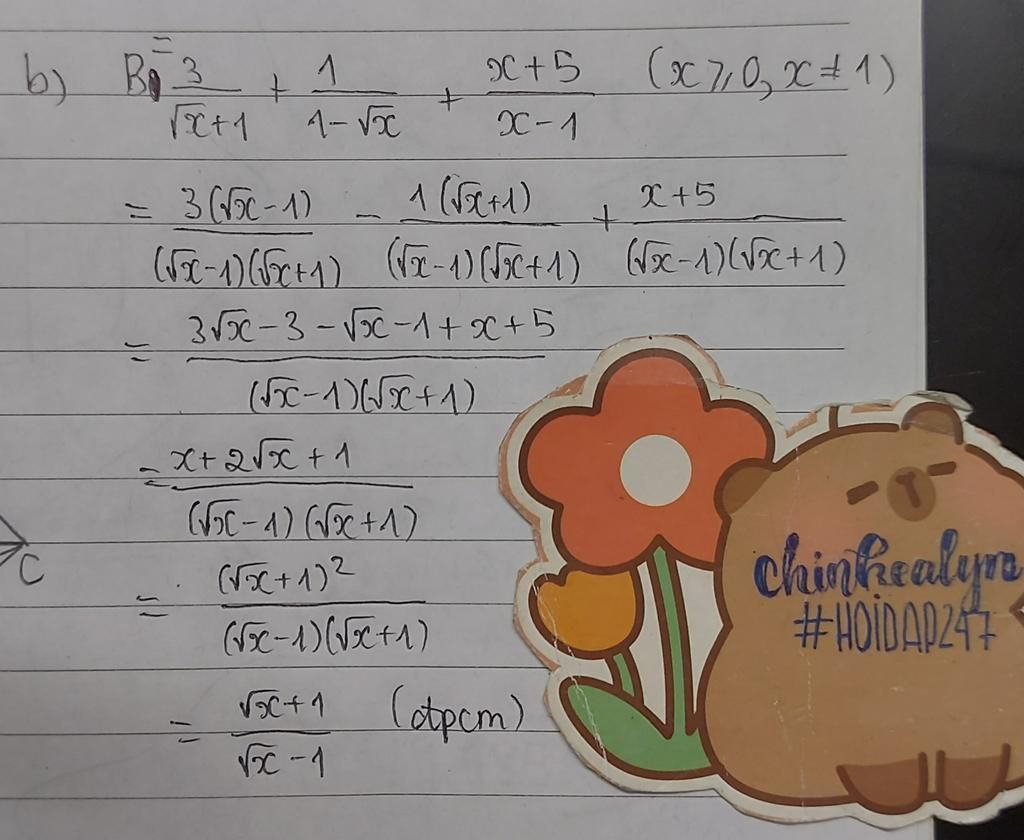 b) B = 3/(√x+1) + 1/(1-√x) + (x+5)/(x-1) (x ⩾ 0, x ≠ 1)
= 3(√x-1)/(√x-1)(√x+1) - 1(√x+1)/(√x-1)(√x+1) + (x+5)/(√x-1)(√x+1)
= (3√x-3-√x-1+x+5)/(√x-1)(√x+1)
= (x+2√x+1)/(√x-1)(√x+1)
C
= (√x+1)²/(√x-1)(√x+1)
= (√x+1)/(√x-1) (đpcm)
chinkealyn
#HOIDAP247